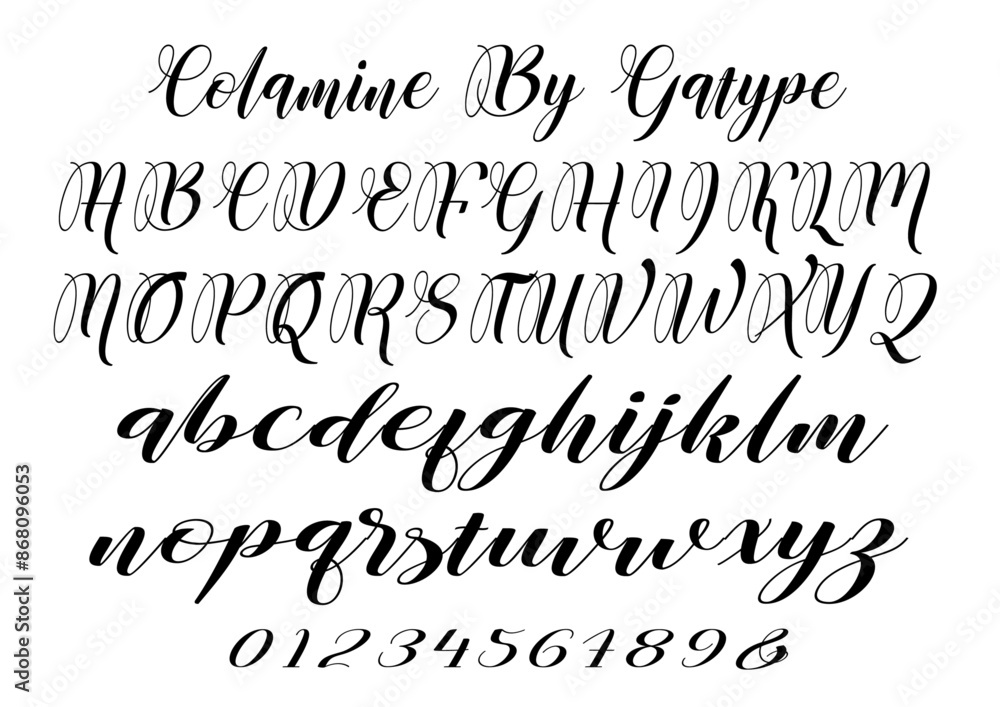 Colamine By Gatype
A B C D E F G H I J K L M
N O P Q R S T U V W X Y Z
a b c d e f g h i j k l m
n o p q r s t u v w x y z
0 1 2 3 4 5 6 7 8 9 &
Adobe Stock | #868096053